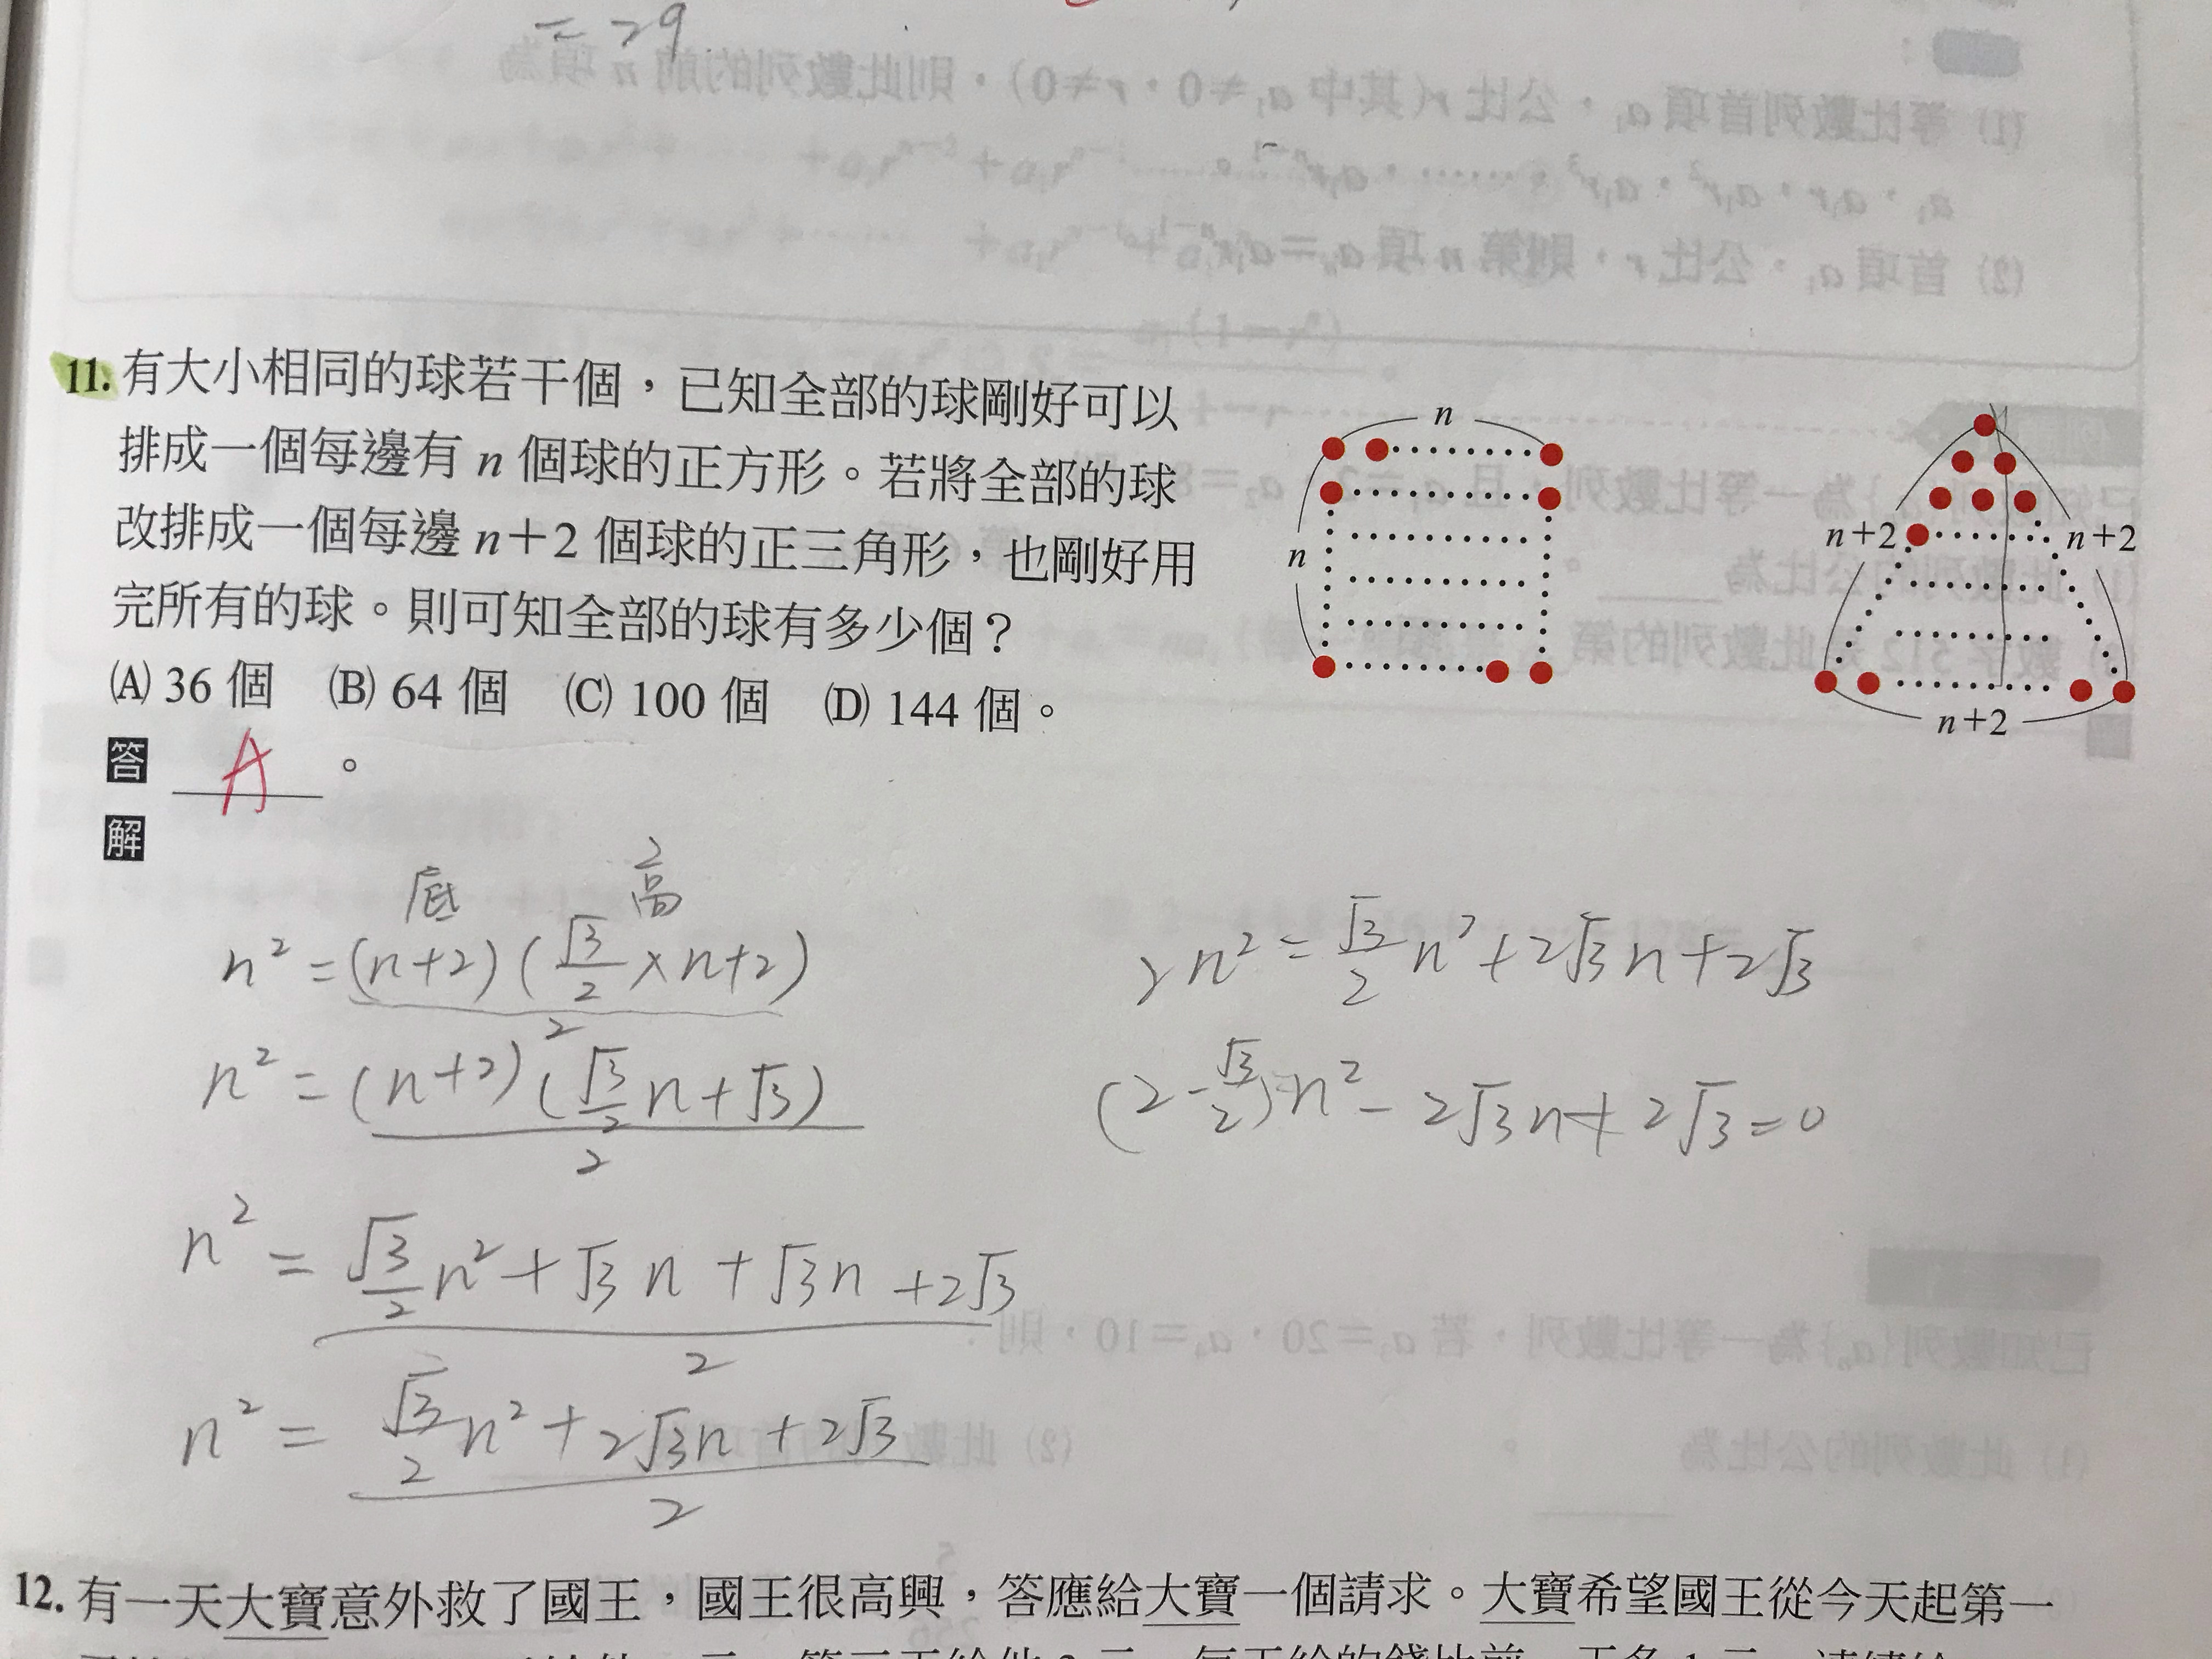 = 29
11. 有大小相同的球若干個，已知全部的球剛好可以
排成一個每邊有 n 個球的正方形。若將全部的球
改排成一個每邊 n＋2 個球的正三角形，也剛好用
完所有的球。則可知全部的球有多少個？
(A) 36 個 (B) 64 個 (C) 100 個 (D) 144 個。
n
n
n＋2
n＋2
n＋2
答 A 。
解
底 高
n² = (n+2)(√3/2 × n+2) / 2
n² = (n+2)(√3/2 n + √3) / 2
n² = √3/2 n² + √3 n + √3 n + 2√3 / 2
n² = √3/2 n² + 2√3 n + 2√3 / 2
2n² = √3/2 n² + 2√3 n + 2√3
(2 - √3/2) n² - 2√3 n + 2√3 = 0
12. 有一天大寶意外救了國王，國王很高興，答應給大寶一個請求。大寶希望國王從今天起第一